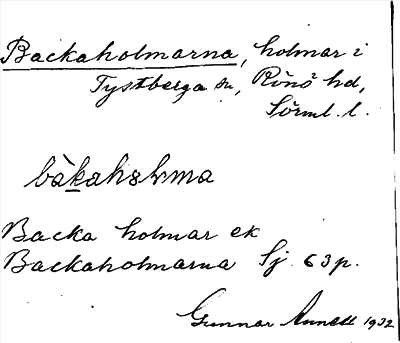 Backaholmarna, holmar i
Tystberga sn, Rönö hd,
Sörml. l.
Backa holmar ek
Backaholmarna Sj 63 p.
Gunnar 1932